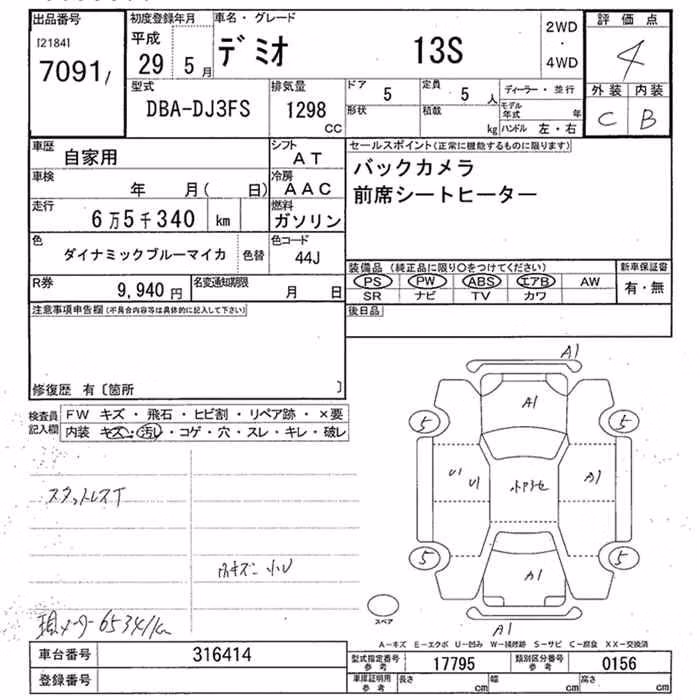 出品番号 初度登録年月 車名・グレード 2WD 評価点
[2184] 平成 デミオ 13S ・ 4
7091 29 5月 4WD
型式 排気量 ドア 5 定員 5人 ディーラー・並行 外装 内装
DBA-DJ3FS 1298 CC 形状 積載 kg モデル年式 年 C B
ハンドル 左・右
車歴 自家用 シフト AT セールスポイント(正常に機能するものに限ります)
車検 年 月( 日) 冷房 AAC バックカメラ
走行 6万5千340 km 燃料 ガソリン 前席シートヒーター
色 ダイナミックブルーマイカ 色替 色コード 44J
装備品(純正品に限り○をつけてください) 新車保証書
R券 9,940円 名変通知期限 月 日 PS PW ABS エアB AW 有・無
SR ナビ TV カワ
注意事項申告欄(不具合内容等は具体的に記入して下さい) 後日品
修復歴 有〔箇所 〕
検査員記入欄 FW キズ・飛石・ヒビ割・リペア跡・×要
内装 キズ・汚レ・コゲ・穴・スレ・キレ・破レ
A1
A1
5 5
U1 U1 A1
スタットレスT
内キズ 小U
5 5
A1
スペア
A1
現メーター 65341km
A-キズ E-エクボ U-凹み W-補修跡 S-サビ C-腐食 XX-交換済
車台番号 316414 型式指定番号 参考 17795 類別区分番号 参考 0156
登録番号 車庫証明用 参考 長さ cm 幅 cm 高さ cm